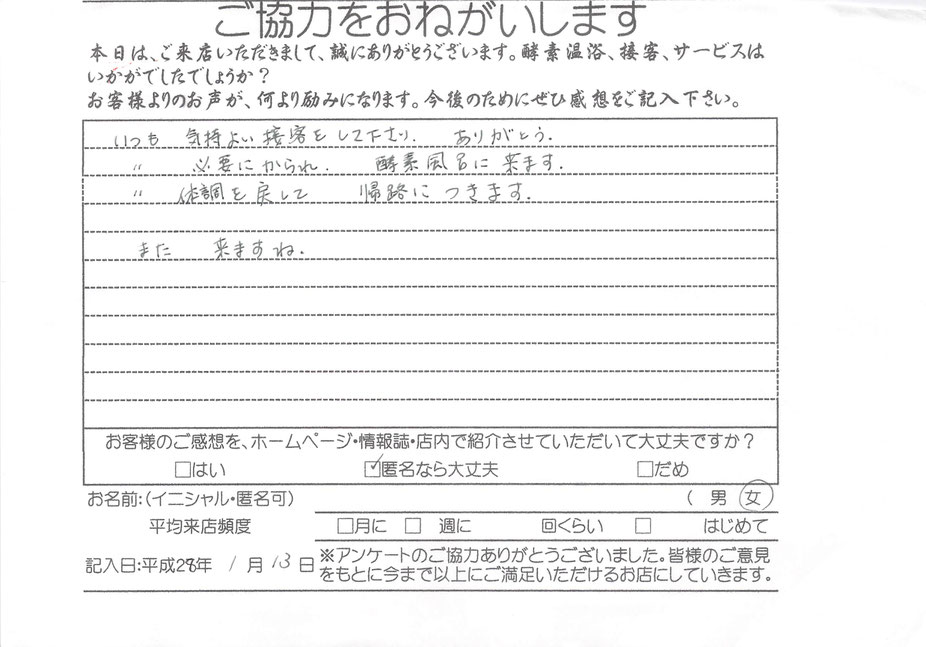 ご協力をおねがいします
本日は、ご来店いただきまして、誠にありがとうございます。酵素温浴、接客、サービスは
いかがでしたでしょうか?
お客様よりのお声が、何より励みになります。今後のためにぜひ感想をご記入下さい。
いつも 気持よい接客をして下さり. ありがとう.
〃 必要にかられ. 酵素風呂に来ます.
〃 体調を戻して 帰路につきます.
また 来ますね.
お客様のご感想を、ホームページ・情報誌・店内で紹介させていただいて大丈夫ですか?
□はい ☑匿名なら大丈夫 □だめ
お名前:(イニシャル・匿名可) ( 男 女 )
平均来店頻度 □月に □ 週に 回くらい □ はじめて
記入日:平成28年 1月 13日 ※アンケートのご協力ありがとうございました。皆様のご意見
をもとに今まで以上にご満足いただけるお店にしていきます。